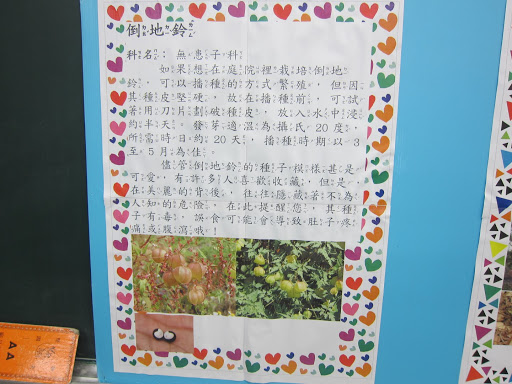 倒地鈴
科名：無患子科
如果想在庭院裡栽培倒地
鈴，可以播種的方式繁殖，但因
其種皮堅硬，故在播種前，可試
著用刀片劃破種皮，放入水中浸
約半天，發芽適溫為攝氏20度，
所需時日約20天，播種時期以3
至5月為佳。
儘管倒地鈴的種子模樣甚是
可愛，有許多人喜歡收藏，但是，
在美麗的背後，往往隱藏著不為
人知的危險，在此提醒您，其種
子有毒，誤食可能會導致肚子疼
痛或腹瀉哦！